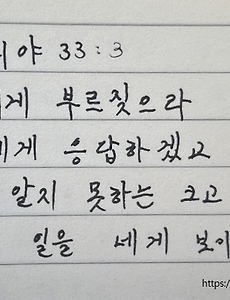 야 33:3
게 부르짖으라
게 응답하겠고
알지 못하는 크고
일을 네게 보이
https:/